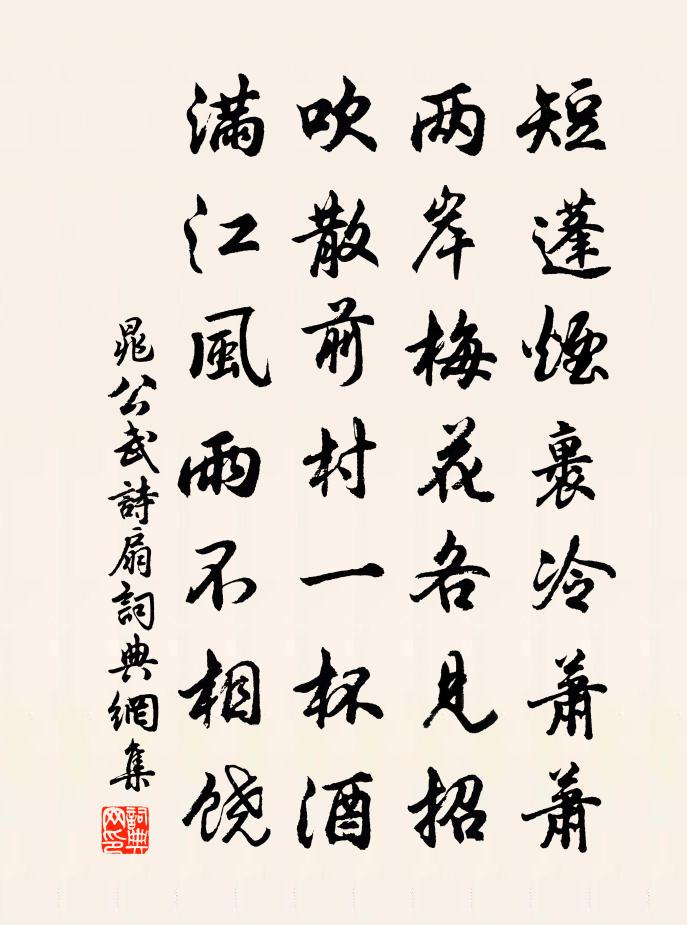 短蓬煙裹冷蕭蕭
两岸梅花各見招
吹散前村一杯酒
滿江風雨不相饶
晁公武詩扇詞典網集
詞典网印